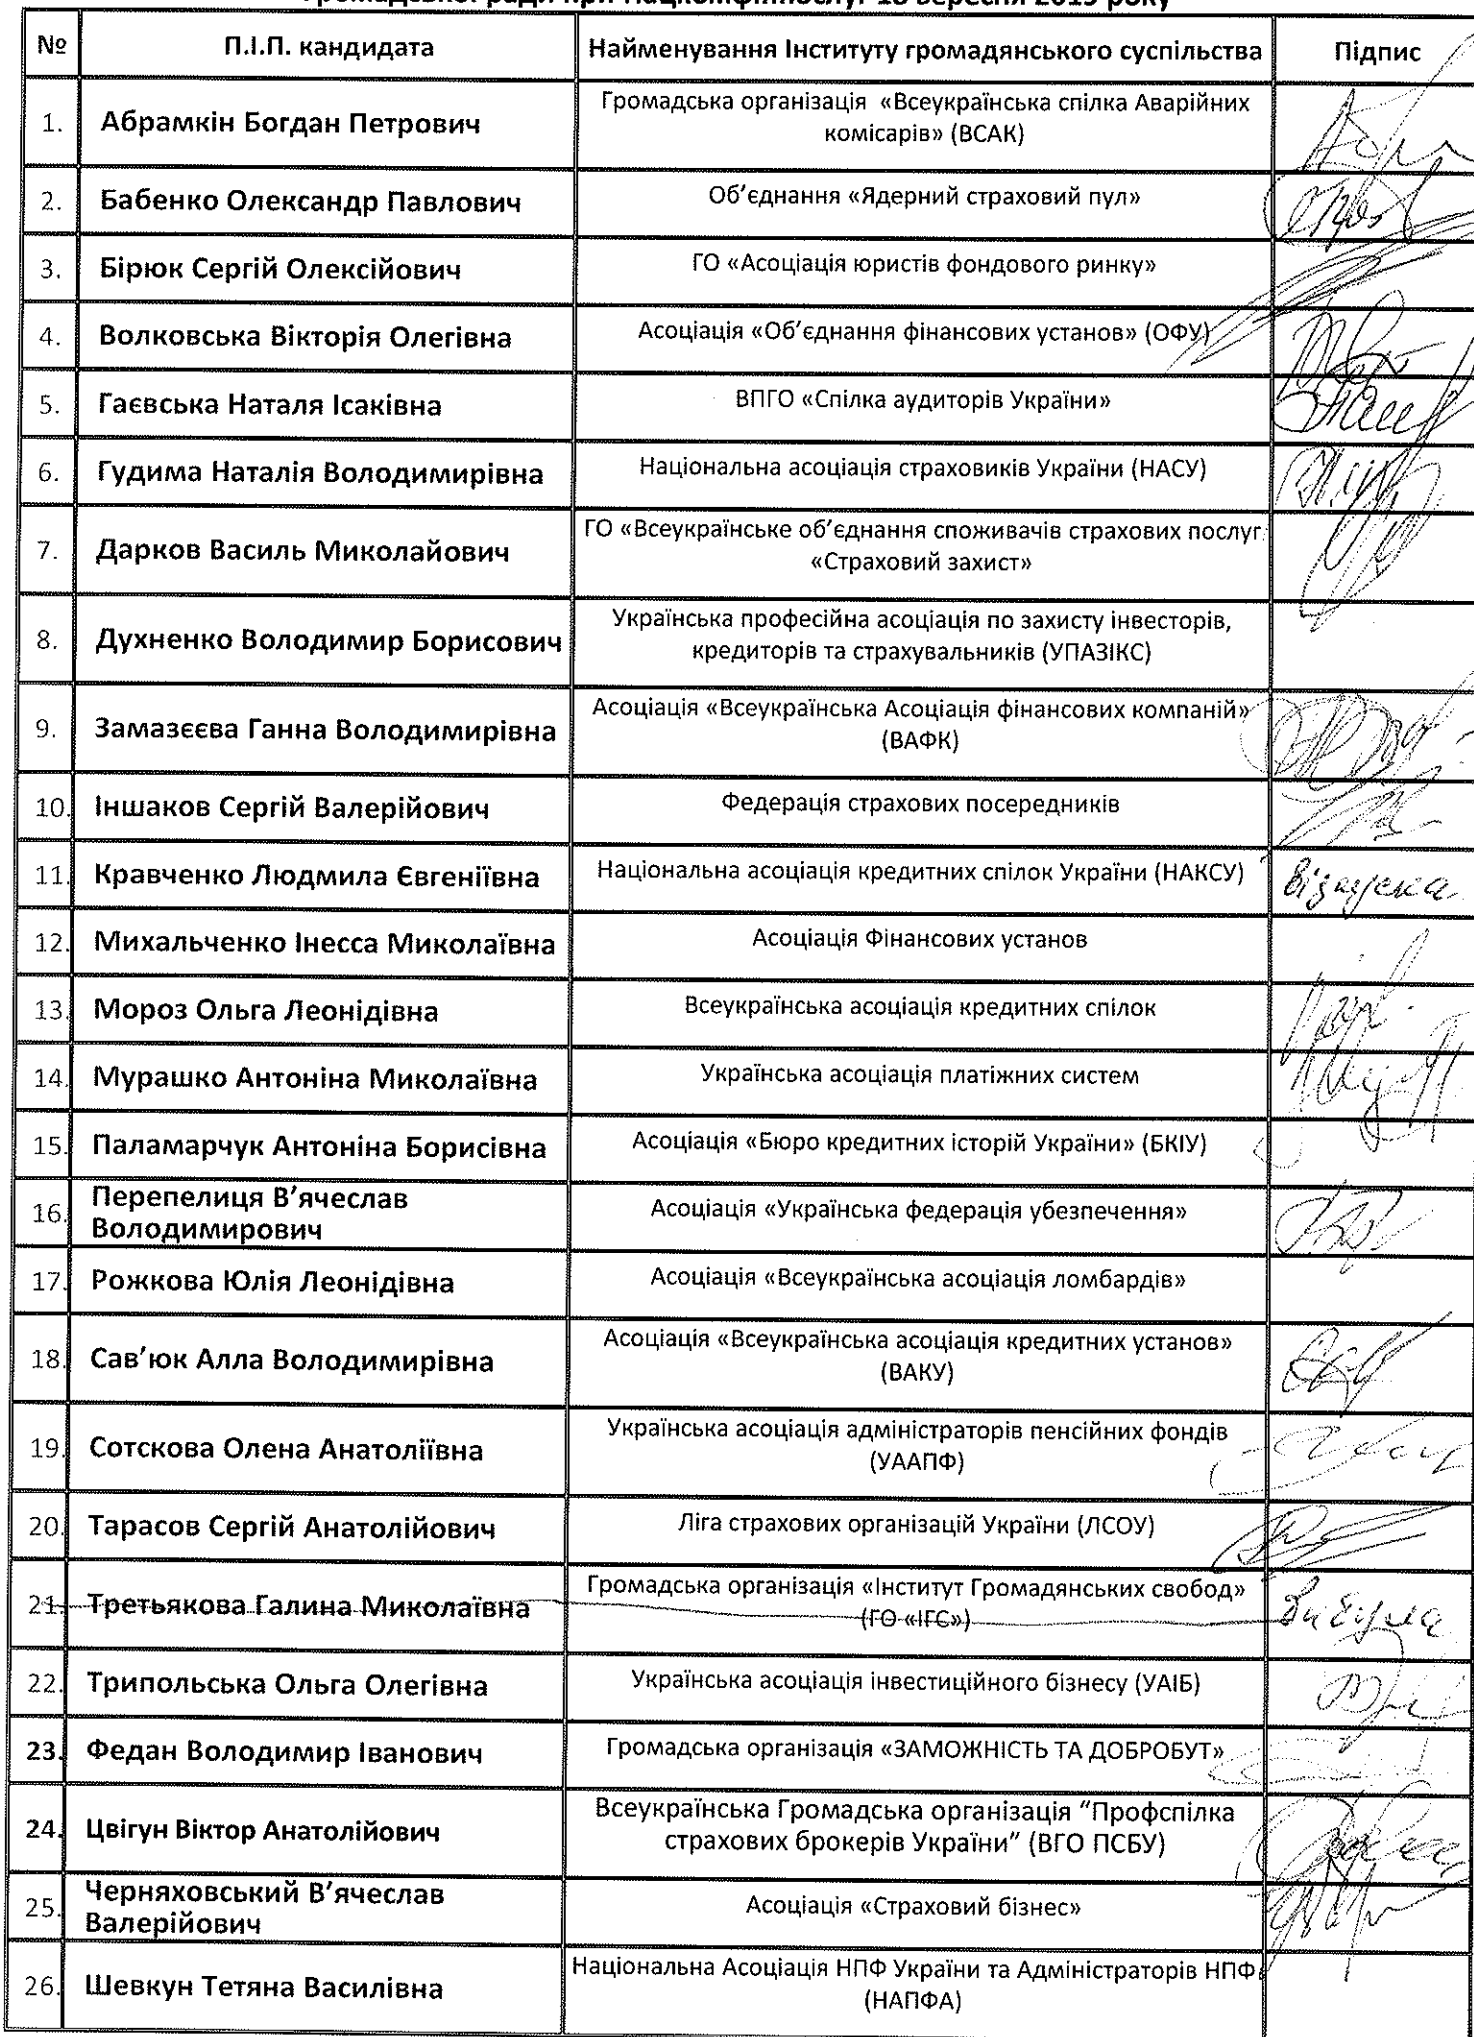 Громадської ради при Нацкомфінпослуг 18 вересня 2015 року
№ П.І.П. кандидата Найменування Інституту громадянського суспільства Підпис
1. Абрамкін Богдан Петрович Громадська організація «Всеукраїнська спілка Аварійних
комісарів» (ВСАК)
2. Бабенко Олександр Павлович Об’єднання «Ядерний страховий пул»
3. Бірюк Сергій Олексійович ГО «Асоціація юристів фондового ринку»
4. Волковська Вікторія Олегівна Асоціація «Об’єднання фінансових установ» (ОФУ)
5. Гаєвська Наталя Ісаківна ВПГО «Спілка аудиторів України»
6. Гудима Наталія Володимирівна Національна асоціація страховиків України (НАСУ)
7. Дарков Василь Миколайович ГО «Всеукраїнське об’єднання споживачів страхових послуг
«Страховий захист»
8. Духненко Володимир Борисович Українська професійна асоціація по захисту інвесторів,
кредиторів та страхувальників (УПАЗІКС)
9. Замазєєва Ганна Володимирівна Асоціація «Всеукраїнська Асоціація фінансових компаній»
(ВАФК)
10. Іншаков Сергій Валерійович Федерація страхових посередників
11. Кравченко Людмила Євгеніївна Національна асоціація кредитних спілок України (НАКСУ) відпустка
12. Михальченко Інесса Миколаївна Асоціація Фінансових установ
13. Мороз Ольга Леонідівна Всеукраїнська асоціація кредитних спілок
14. Мурашко Антоніна Миколаївна Українська асоціація платіжних систем
15. Паламарчук Антоніна Борисівна Асоціація «Бюро кредитних історій України» (БКІУ)
16. Перепелиця В’ячеслав
Володимирович Асоціація «Українська федерація убезпечення»
17. Рожкова Юлія Леонідівна Асоціація «Всеукраїнська асоціація ломбардів»
18. Сав’юк Алла Володимирівна Асоціація «Всеукраїнська асоціація кредитних установ»
(ВАКУ)
19. Сотскова Олена Анатоліївна Українська асоціація адміністраторів пенсійних фондів
(УААПФ)
20. Тарасов Сергій Анатолійович Ліга страхових організацій України (ЛСОУ)
21. Третьякова Галина Миколаївна Громадська організація «Інститут Громадянських свобод»
(ГО «ІГС») Вибула
22. Трипольська Ольга Олегівна Українська асоціація інвестиційного бізнесу (УАІБ)
23. Федан Володимир Іванович Громадська організація «ЗАМОЖНІСТЬ ТА ДОБРОБУТ»
24. Цвігун Віктор Анатолійович Всеукраїнська Громадська організація “Профспілка
страхових брокерів України” (ВГО ПСБУ)
25. Черняховський В’ячеслав
Валерійович Асоціація «Страховий бізнес»
26. Шевкун Тетяна Василівна Національна Асоціація НПФ України та Адміністраторів НПФ
(НАПФА)